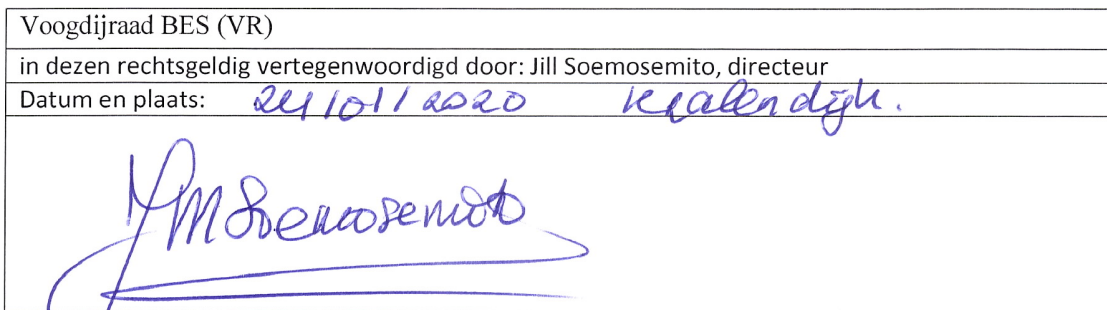 Voogdijraad BES (VR)
in dezen rechtsgeldig vertegenwoordigd door: Jill Soemosemito, directeur
Datum en plaats: 24/01/2020 Kralendijk.
JM Soemosemito